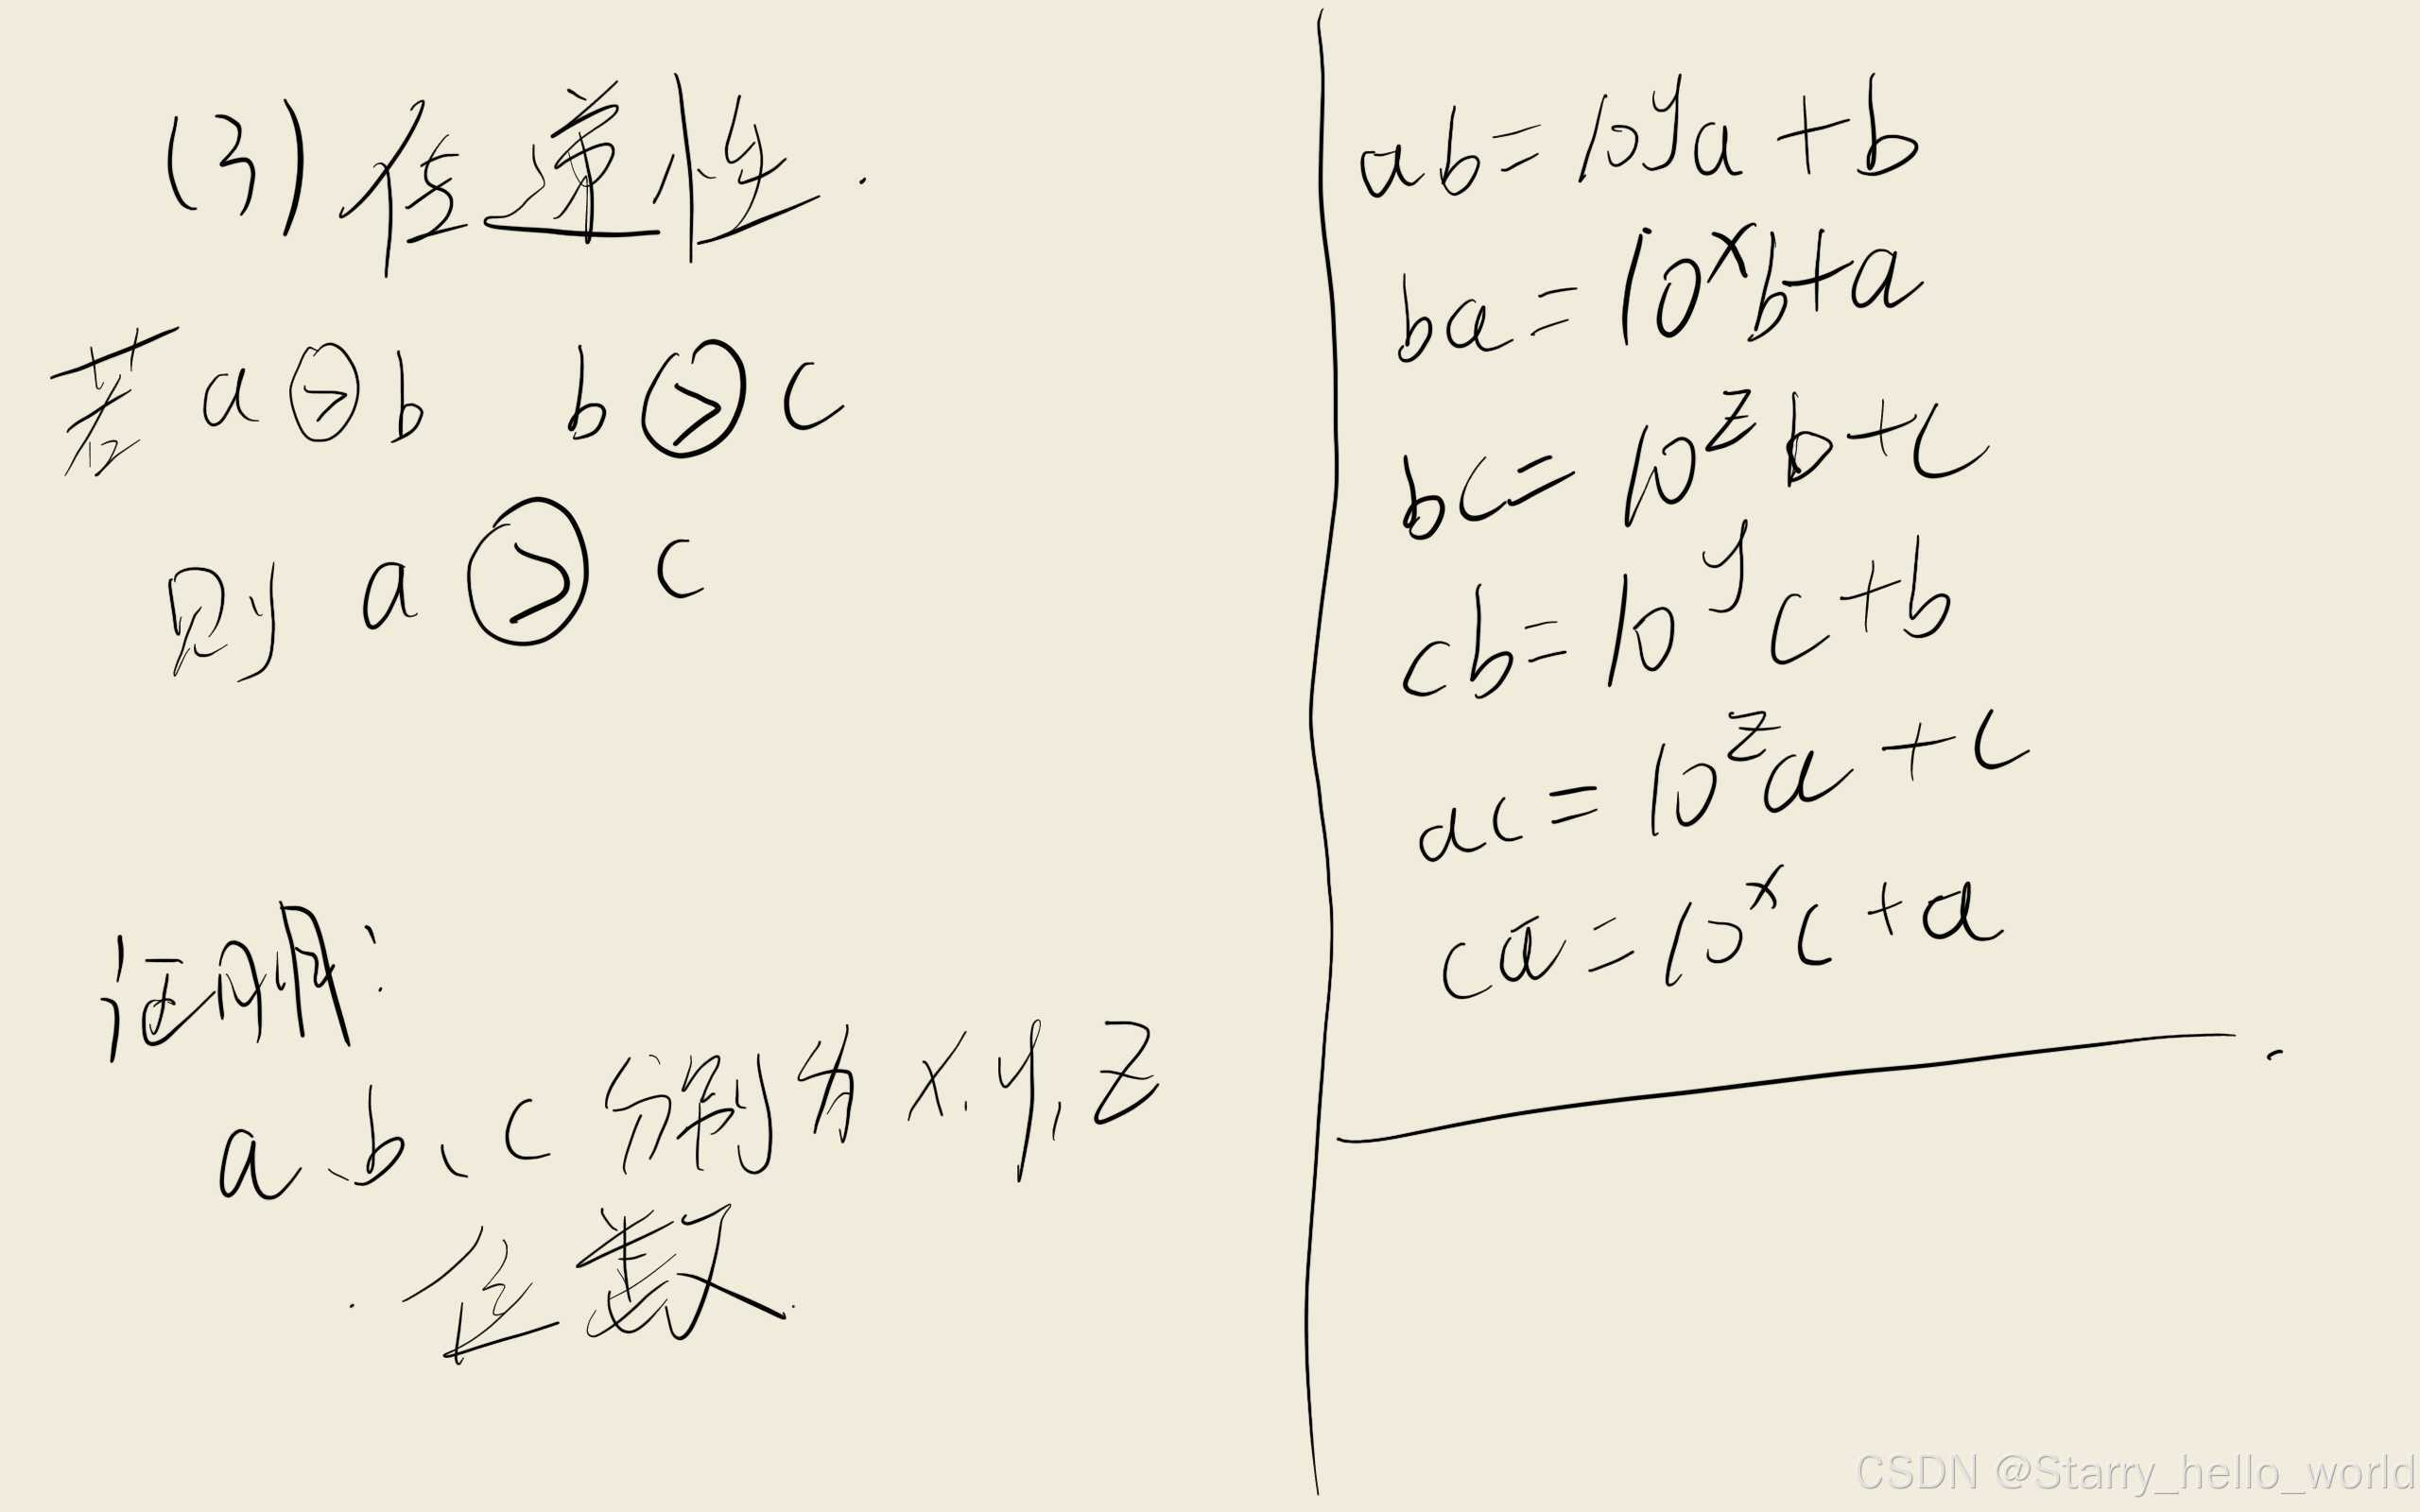 (3) 传递性.
若 a > b b > c
则 a > c
证明:
a、b、c 分别为 x,y,z
位数.
ab = 10^y a + b
ba = 10^x b + a
bc = 10^z b + c
cb = 10^y c + b
ac = 10^z a + c
ca = 10^x c + a
CSDN @Starry_hello_world